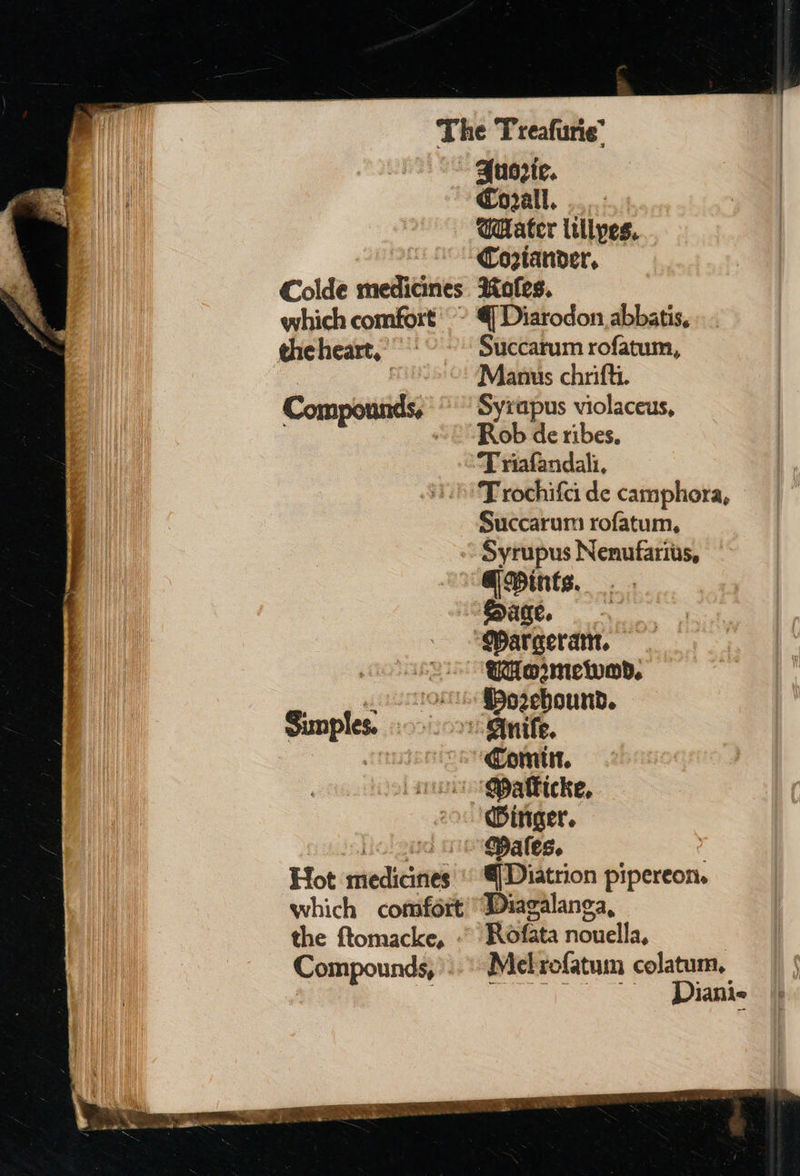 The Treaſurie
Juorie.
Corall.
Water lillyes.
Coriander.
Colde medicines Roſes.
which comfort ¶ Diarodon abbatis,
the heart, Succarum roſatum,
Manus chriſti.
Compounds, Syrapus violaceus,
Rob de ribes,
Triaſandali,
Trochiſci de camphora,
Succarum roſatum,
Syrupus Nenufarius,
¶ Mints.
Sage.
Margeram.
Wormewod.
Horehound.
Simples. Aniſe.
Comin.
Maſticke.
Ginger.
Maſes.
Hot medicines ¶ Diatrion pipereon.
which comfort Diagalanga,
the ſtomacke, Roſata nouella,
Compounds, Mel roſatum colatum,
Diani-